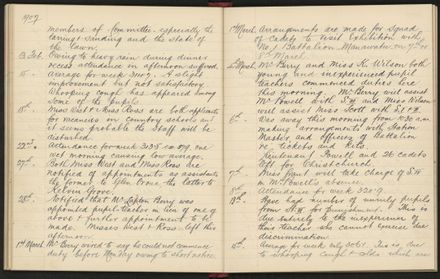 1907
members of Committee, especially the
carriage winding and the state of
the lawn.
13 Feb. Owing to heavy rain during dinner
recess attendance in afternoon suffered.
15 Average for week 300.7. A slight
improvement but not satisfactory.
Whooping cough has appeared among
some of the pupils.
18th Miss West & Ross Ross are both applicants
for vacancies in country schools and
it seems probable the Staff will be
disturbed.
22nd Attendance for week
wet morning causing low average.
27th Both Miss West and Miss Ross are
notified of appointments as assistants
the former to Glen Orona the latter to
Kelvin Grove.
28th Notified that Mr Berry was
appointed pupil teacher in lieu of one of
above & further appointment to be
made. Misses West & Ross left this
afternoon.
1st March Mr Berry wired to say he could not commence
duty before Monday owing to short notice.
1st March Arrangements are made for Squad
of Cadets to visit Exhibition with
No 1 Battalion Manawatu on 7th to
March.
March Mr Berry and Miss K. Wilson both
young and inexperienced pupil
teachers commenced duties here
this morning. Mr Berry will assist
Mr Powell with and Miss Wilson
will assist Miss Scott with
6th Was away this morning from a.m
making arrangements with Station
Master, and Officers of Battalion
re tickets and kits.
Lieutenant Powell and 26 cadets
left for Christchurch.
7th Miss Grant will take charge of
in Mr Powell's absence.
8th Attendance for week
13th Have had number of unruly pupils
from for punishment. This is
due entirely to the inexperience of
this teacher who cannot exercise due
discrimination.
15th Average for week only 306.1. This is due
to whooping cough & colds which are